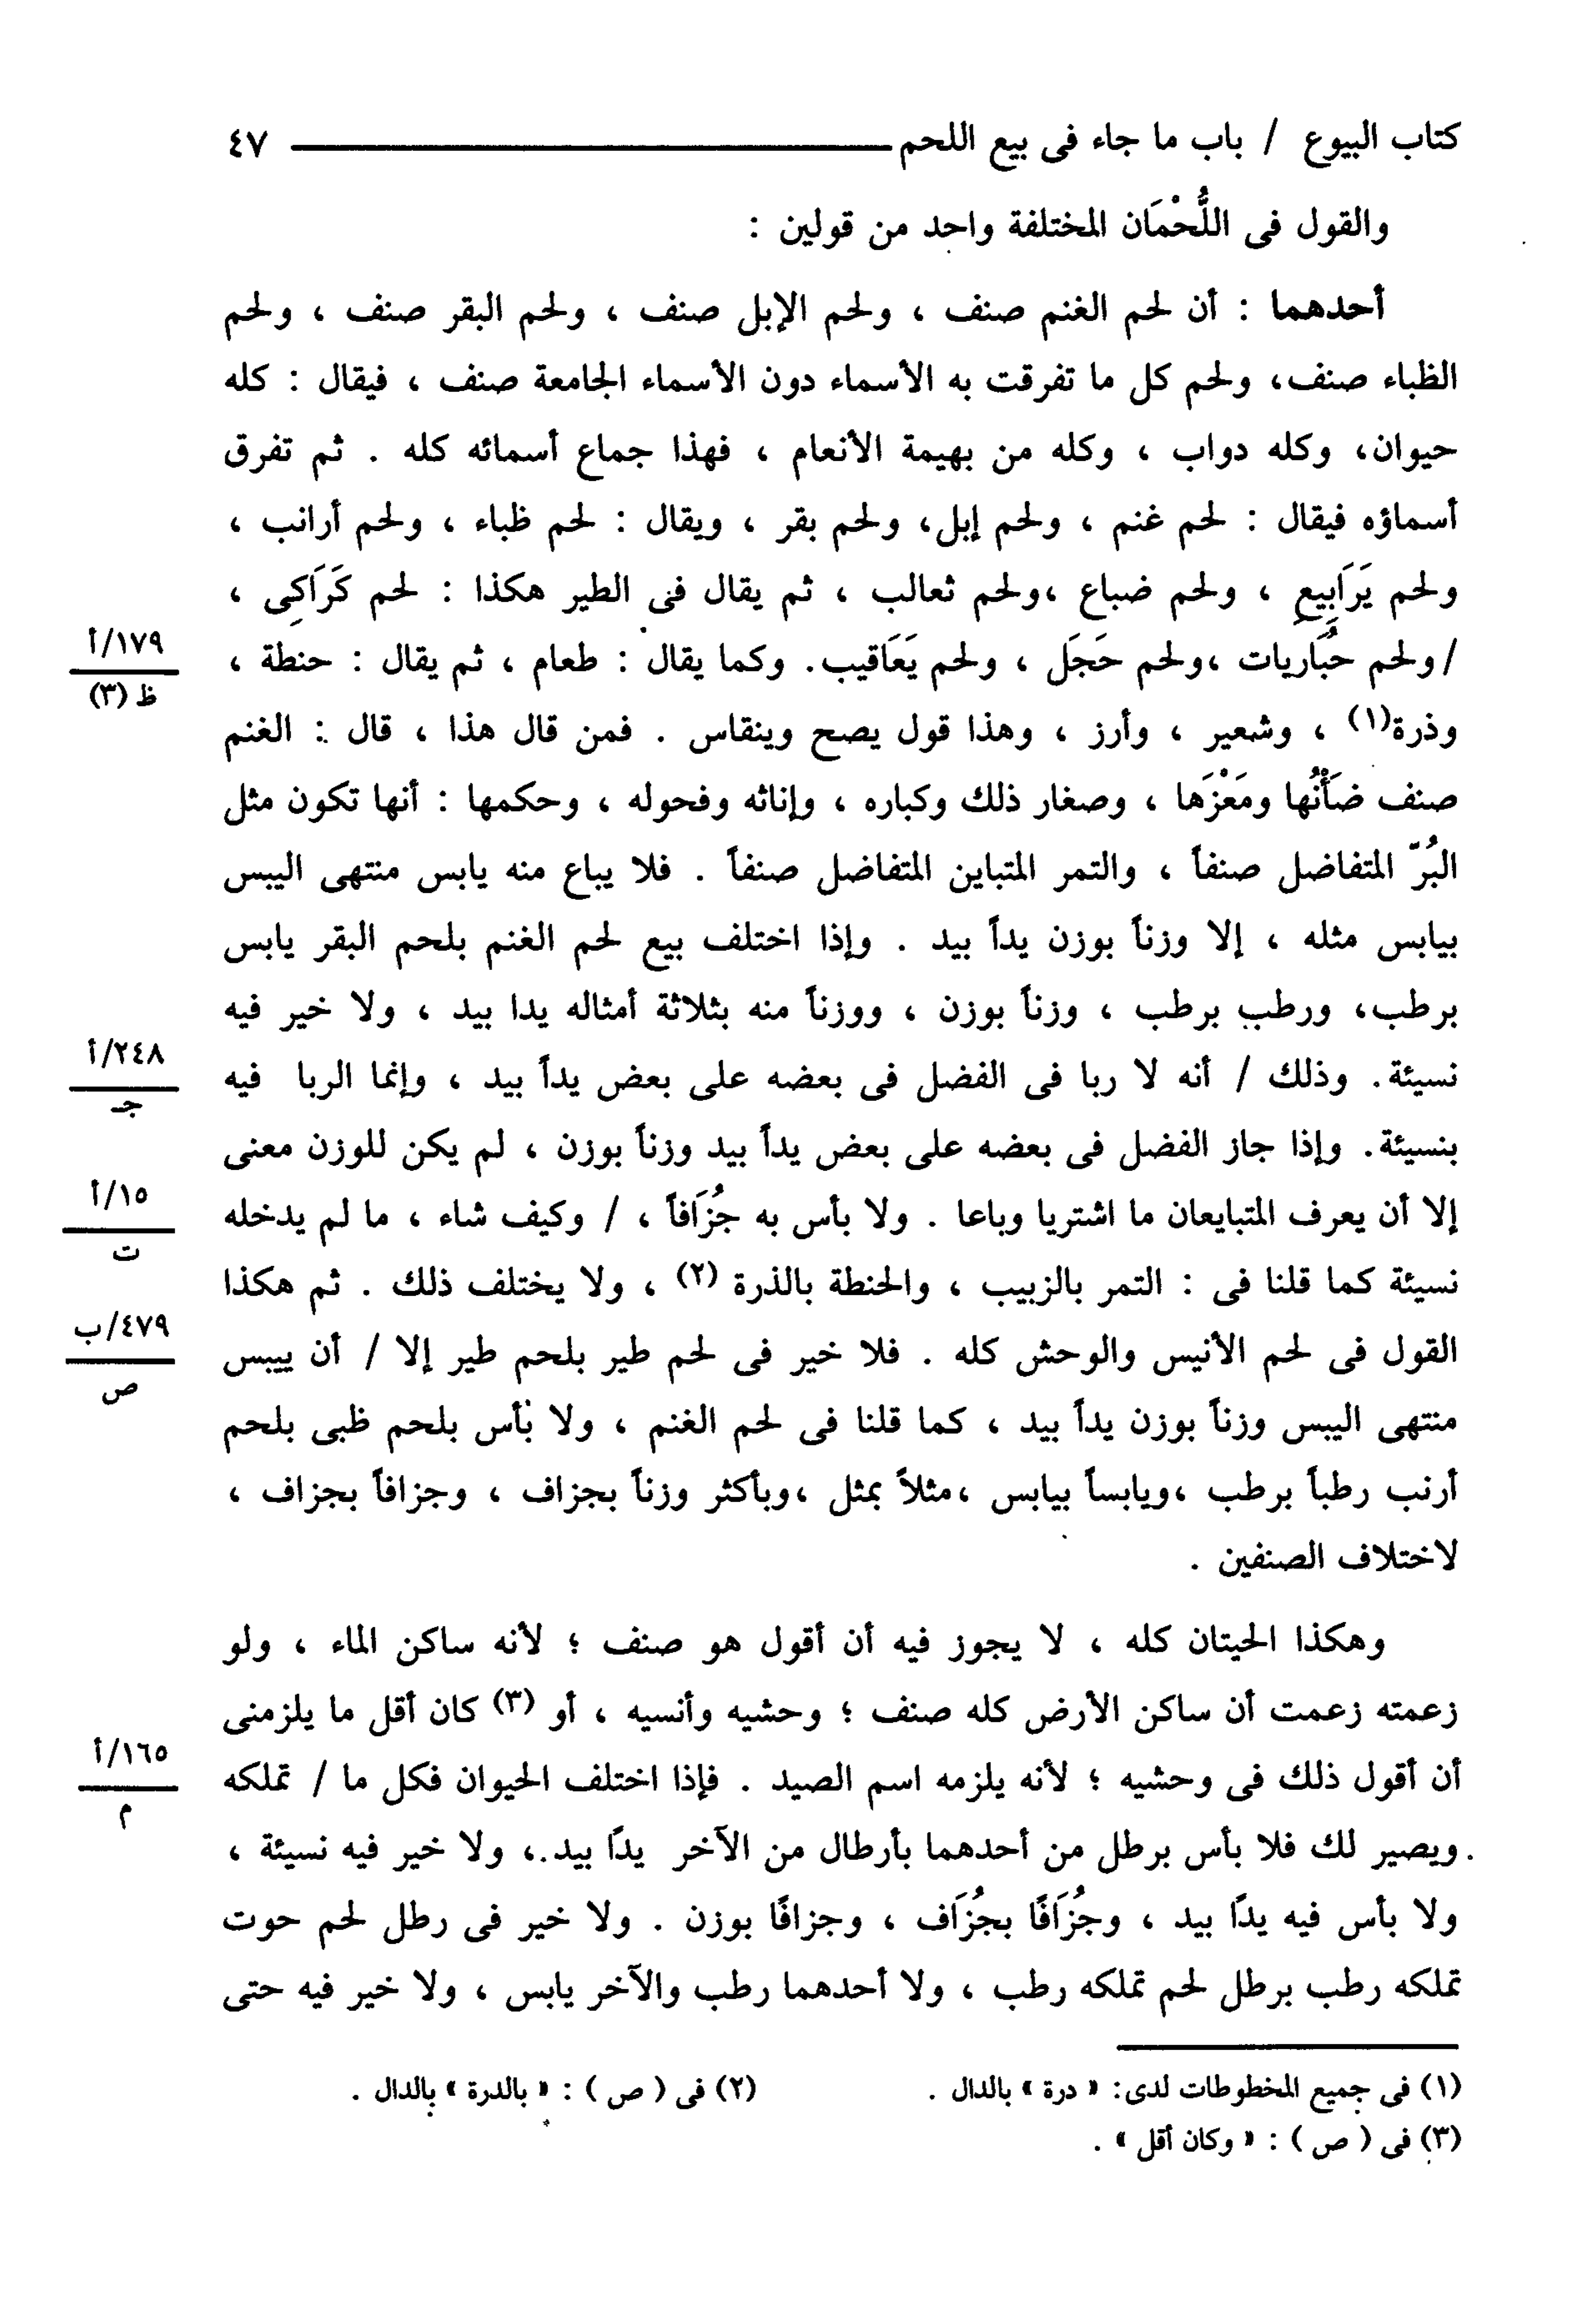 كتاب البيوع / باب ما جاء فى بيع اللحم ٤٧
والقول فى اللُّحْمَان المختلفة واحد من قولين :
أحدهما : أن لحم الغنم صنف ، ولحم الإبل صنف ، ولحم البقر صنف ، ولحم
الظباء صنف، ولحم كل ما تفرقت به الأسماء دون الأسماء الجامعة صنف ، فيقال : كله
حيوان، وكله دواب ، وكله من بهيمة الأنعام ، فهذا جماع أسمائه كله . ثم تفرق
أسماؤه فيقال : لحم غنم ، ولحم إبل، ولحم بقر ، ويقال : لحم ظباء ، ولحم أرانب ،
ولحم يَرَابِيع ، ولحم ضباع ،ولحم ثعالب ، ثم يقال فى الطير هكذا : لحم كَرَاكِى ،
/ ولحم حُبَاريات ،ولحم حَجَل ، ولحم يَعَاقيب. وكما يقال : طعام ، ثم يقال : حنطة ،
١٧٩/أ
ظ (٣)
وذرة(١) ، وشعير ، وأرز ، وهذا قول يصح وينقاس . فمن قال هذا ، قال : الغنم
صنف ضَأْنُها ومَعْزَها ، وصغار ذلك وكباره ، وإناثه وفحوله ، وحكمها : أنها تكون مثل
البُرّ المتفاضل صنفاً ، والتمر المتباين المتفاضل صنفاً . فلا يباع منه يابس منتهى اليبس
بيابس مثله ، إلا وزناً بوزن يداً بيد . وإذا اختلف بيع لحم الغنم بلحم البقر يابس
برطب، ورطب برطب ، وزناً بوزن ، ووزناً منه بثلاثة أمثاله يدا بيد ، ولا خير فيه
نسيئة. وذلك / أنه لا ربا فى الفضل فى بعضه على بعض يداً بيد ، وإنما الربا فيه
٢٤٨/أ
جـ
بنسيئة. وإذا جاز الفضل فى بعضه على بعض يداً بيد وزناً بوزن ، لم يكن للوزن معنى
إلا أن يعرف المتبايعان ما اشتريا وباعا . ولا بأس به جُزَافاً ، / وكيف شاء ، ما لم يدخله
١٥/أ
ت
نسيئة كما قلنا فى : التمر بالزبيب ، والحنطة بالذرة (٢) ، ولا يختلف ذلك . ثم هكذا
القول فى لحم الأنيس والوحش كله . فلا خير فى لحم طير بلحم طير إلا / أن ييبس
٤٧٩/ب
ص
منتهى اليبس وزناً بوزن يداً بيد ، كما قلنا فى لحم الغنم ، ولا بأس بلحم ظبى بلحم
أرنب رطباً برطب ،ويابساً بيابس ،مثلاً بمثل ،وبأكثر وزناً بجزاف ، وجزافاً بجزاف ،
لاختلاف الصنفين .
وهكذا الحيتان كله ، لا يجوز فيه أن أقول هو صنف ؛ لأنه ساكن الماء ، ولو
زعمته زعمت أن ساكن الأرض كله صنف ؛ وحشيه وأنسيه ، أو (٣) كان أقل ما يلزمنى
أن أقول ذلك فى وحشيه ؛ لأنه يلزمه اسم الصيد . فإذا اختلف الحيوان فكل ما / تملكه
١٦٥/أ
م
ويصير لك فلا بأس برطل من أحدهما بأرطال من الآخر يداً بيد ، ولا خير فيه نسيئة ،
ولا بأس فيه يداً بيد ، وجُزَافًا بجُزَاف ، وجزافًا بوزن . ولا خير فى رطل لحم حوت
تملكه رطب برطل لحم تملكه رطب ، ولا أحدهما رطب والآخر يابس ، ولا خير فيه حتى
(١) فى جميع المخطوطات لدى: « درة » بالدال . (٢) فى ( ص ) : « بالدرة » بالدال .
(٣) فى ( ص ) : « وكان أقل » .